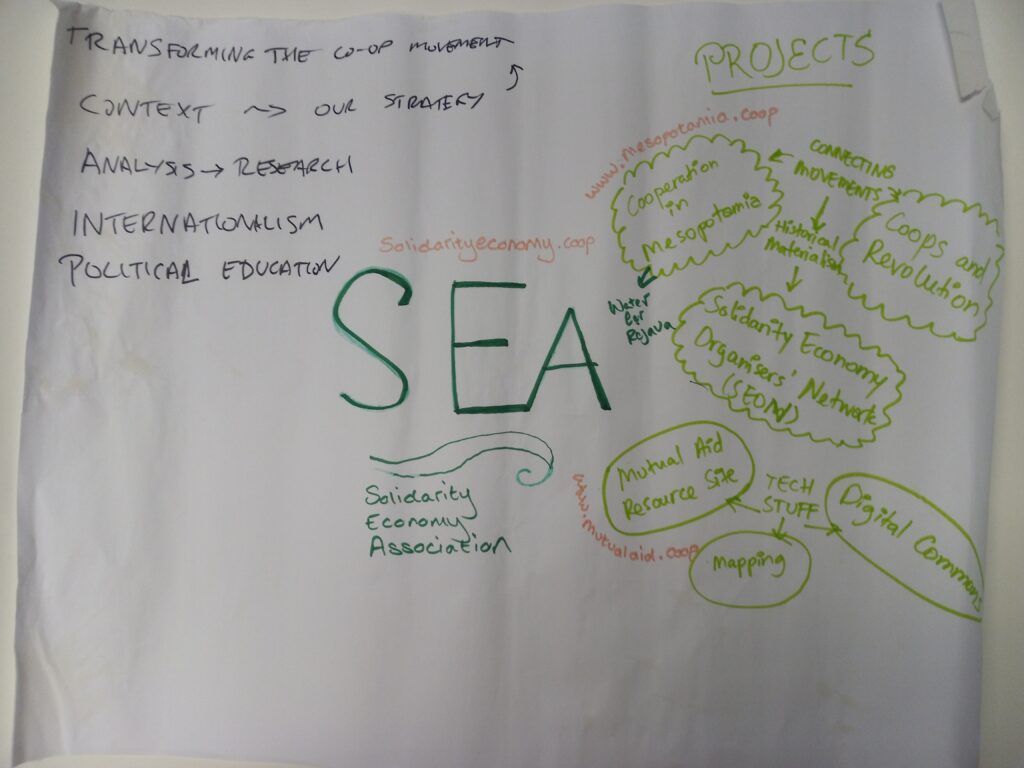 TRANSFORMING THE CO-OP MOVEMENT
CONTEXT → OUR STRATEGY
ANALYSIS → RESEARCH
INTERNATIONALISM
POLITICAL EDUCATION
solidarityeconomy.coop
SEA
Solidarity
Economy
Association
PROJECTS
www.mesopotamia.coop
Cooperation
in
Mesopotamia
CONNECTING
MOVEMENTS
Historical
Materialism
Coops and
Revolution
Water
for
Rojava
Solidarity Economy
Organisers' Network
(SEON)
www.mutualaid.coop
Mutual Aid
Resource Site
TECH
STUFF
Mapping
Digital Commons